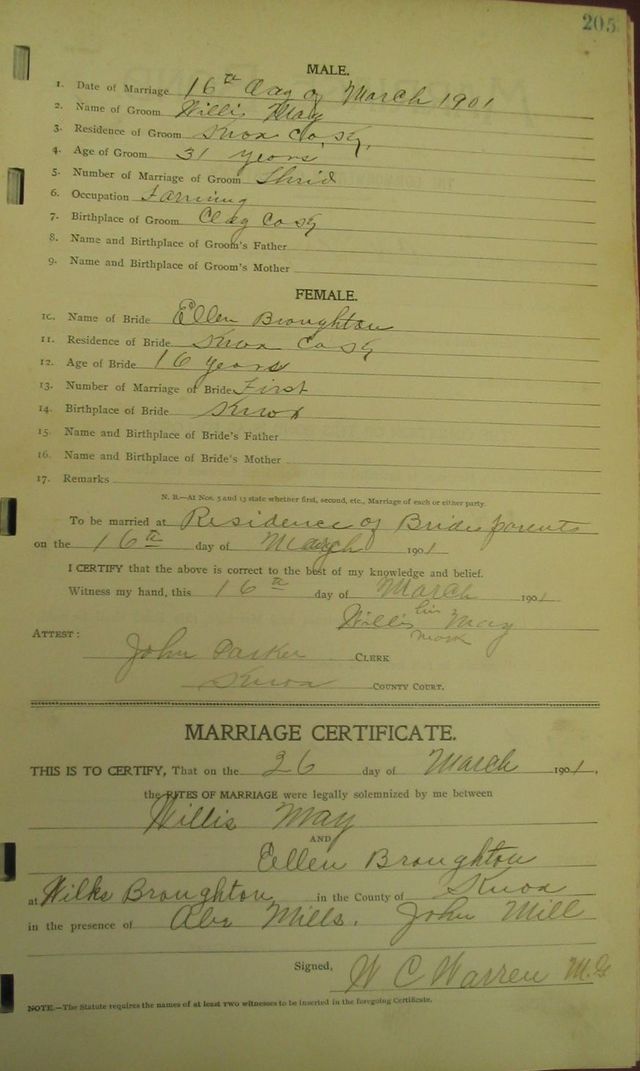 205
MALE.
1. Date of Marriage 16th day of March 1901
2. Name of Groom Willis May
3. Residence of Groom Knox Co, Ky,
4. Age of Groom 31 years
5. Number of Marriage of Groom Third
6. Occupation Farming
7. Birthplace of Groom Clay Co Ky
8. Name and Birthplace of Groom's Father
9. Name and Birthplace of Groom's Mother
FEMALE.
10. Name of Bride Ellen Broughton
11. Residence of Bride Knox Co Ky
12. Age of Bride 16 years
13. Number of Marriage of Bride First
14. Birthplace of Bride Knox
15. Name and Birthplace of Bride's Father
16. Name and Birthplace of Bride's Mother
17. Remarks
N. B.—At Nos. 5 and 13 state whether first, second, etc., Marriage of each or either party.
To be married at Residence of Brides parents
on the 16th day of March 1901
I CERTIFY that the above is correct to the best of my knowledge and belief.
Witness my hand, this 16th day of March 1901
Willis his May
mark
ATTEST:
John Parker CLERK
Knox COUNTY COURT.
MARRIAGE CERTIFICATE.
THIS IS TO CERTIFY, That on the 26 day of March 1901,
the RITES OF MARRIAGE were legally solemnized by me between
Willis May
AND
Ellen Broughton
at Wilks Broughton in the County of Knox
in the presence of Abe Mills. John Mill
Signed, W C Warren M.G
NOTE.—The Statute requires the names of at least two witnesses to be inserted in the foregoing Certificate.